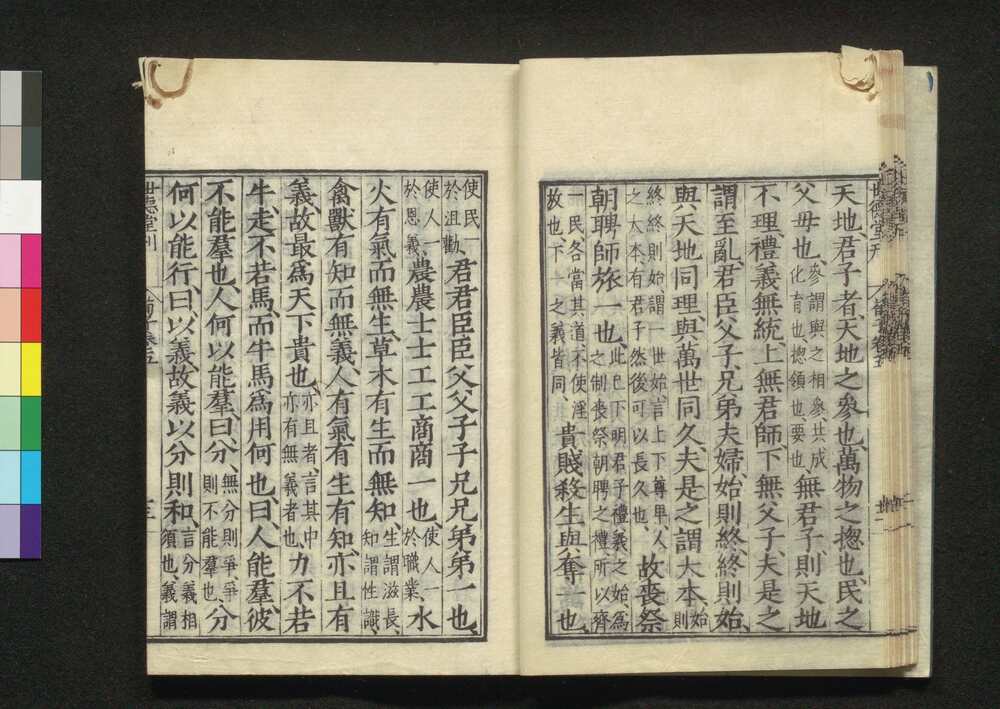 天地君子者、天地之參也、萬物之揔也、民之
父母也、參謂與之相參共成化育也、揔領也、要也、無君子則天地
不理、禮義無統、上無君師、下無父子、夫是之
謂至亂、君臣父子、兄弟夫婦、始則終、終則始、
與天地同理、與萬世同久、夫是之謂大本、始則
終終則始、謂一世始、言上下尊卑、人之大本、有君子然後可以長久也、故喪祭
朝聘師旅一也、此已下明君子禮義之始、爲之制喪祭朝聘之禮、所以齊
一民各當其道、不使淫故也、下一之義皆同、貴賤殺生與奪一也、
使民一於沮勸、君君臣臣父父子子兄兄弟弟一也、
使人一於恩義、農農士士工工商商一也、使人一於職業、水
火有氣而無生、草木有生而無知、生謂滋長、知謂性識、
禽獸有知而無義、人有氣有生有知、亦且有
義、故最爲天下貴也、亦且者、言其中亦有無義者也、力不若
牛、走不若馬、而牛馬爲用何也、曰、人能羣、彼
不能羣也、人何以能羣、曰、分、無分則爭、爭則不能羣也、分
何以能行、曰、以義、故義以分則和、言分義相須也、義謂
世德堂刊